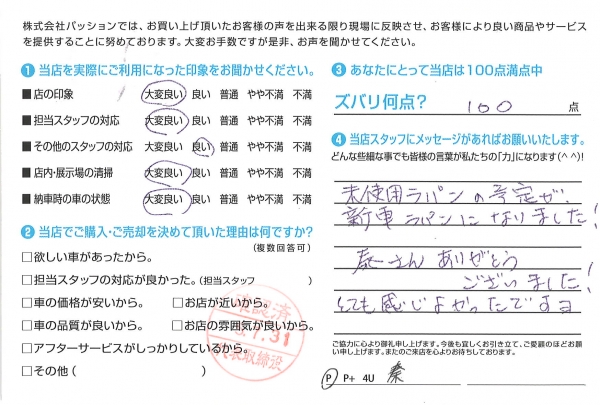 株式会社パッションでは、お買い上げ頂いたお客様の声を出来る限り現場に反映させ、お客様により良い商品やサービス
を提供することに努めております。大変お手数ですが是非、お声を聞かせてください。
1 当店を実際にご利用になった印象をお聞かせください。
■店の印象 大変良い 良い 普通 やや不満 不満
■担当スタッフの対応 大変良い 良い 普通 やや不満 不満
■その他のスタッフの対応 大変良い 良い 普通 やや不満 不満
■店内・展示場の清掃 大変良い 良い 普通 やや不満 不満
■納車時の車の状態 大変良い 良い 普通 やや不満 不満
2 当店でご購入・ご売却を決めて頂いた理由は何ですか?
(複数回答可)
□欲しい車があったから。
□担当スタッフの対応が良かった。(担当スタッフ )
□車の価格が安いから。 □お店が近いから。
□車の品質が良いから。 □お店の雰囲気が良いから。
□アフターサービスがしっかりしているから。
□その他( )
確認済
7.31
代表取締役
3 あなたにとって当店は100点満点中
ズバリ何点? 100 点
4 当店スタッフにメッセージがあればお願いいたします。
どんな些細な事でも皆様の言葉が私たちの「力」になります(^^)!
未使用ラパンの予定が、
新車ラパンになりました!
秦さん ありがとう
ございました!
とても感じよかったですヨ
ご協力に心より御礼申し上げます。今後も宜しくお引き立て、ご愛顧のほどお願
い申し上げます。またのご来店を心よりお待ちしております。
P P+ 4U 秦